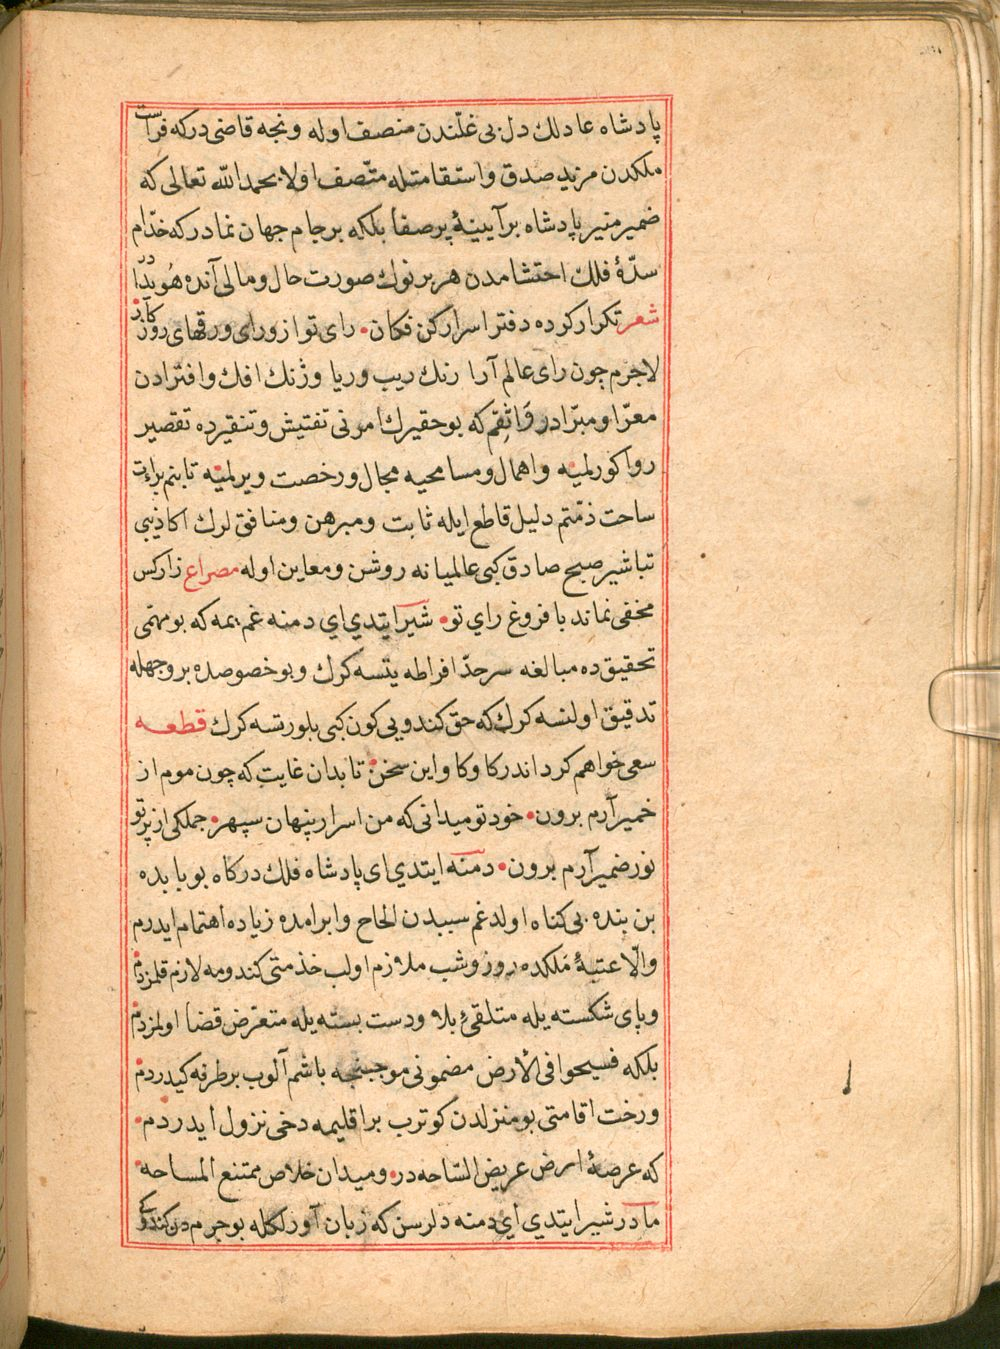 پادشاه عادلك دل بی غلّندن منصف اوله ونجه قاضی دركه فراست
ملكدن مزید صدق واستقامتله متّصف اولا بحمد الله تعالی كه
ضمیر منیر پادشاه بر آیینهٔ پر صفا بلكه بر جام جهان نمادر كه خدّام
سدّهٔ فلك احتشامدن هر برنوك صورت حال ومالی آنده هُویدا در
شعر تكرار كرده دفتر اسرار كن فكان رای تو از ورای ورقهای روز كار
لاجرم چون رای عالم آرا رنك ریب وریا وژنك افك وافترادن
معرّا ومبرّادر وَاثِقم كه بو حقیرك امرنی تفتیش وتنقیرده تقصیر
روا كورلمیه واهمال ومسامحیه مجال ورخصت ویرلمیه تا بنم براءت
ساحت ذمّتم دلیل قاطع ایله ثابت ومبرهن ومنافق لرك اكاذیبی
تباشیر صبح صادق كبی عالمیانه روشن ومعاین اوله مصراع زاركس
مخفی نماند با فروغ رای تو شیر ایتدی ای دمنه غم یمه كه بو مهمّی
تحقیق ده مبالغه سرحدّ افراطه یتسه كرك وبو خصوصده بر وجهله
تدقیق اولنسه كرك كه حق كندویی كون كبی بلورتسه كرك قطعه
سعی خواهم كرد اندر كاوكاو این سخن تا بدان غایت كه چون موم از
خمیر آرم برون خود تو میدانی كه من اسرار پنهان سپهر جملكی از پرتو
نور ضمیر آرم برون دمنه ایتدی ای پادشاه فلك دركاه بو بابده
بن بنده بی كناه اولدغم سببدن الحاح وابرامده زیاده اهتمام ایدرم
والّا عتبهٔ مَلكده روز وشب ملازم اولب خذمتی كندومه لازم قلمزدم
وپای شكسته یله متلقیٔ بلا ودست بسته یله متعرّض قضا اولمزدم
بلكه فسیحوا فی الأرض مضمونی موجبنجه باشم آلوب بر طرفه كیدردم
ورخت اقامتی بو منزلدن كوترب بر اقلیمه دخی نزول ایدردم
كه عرصهٔ ارض عریض السّاحه در ومیدان خلاص ممتنع المساحه
مادر شیر ایتدی ای دمنه دلرسن كه زبان آورلكله بو جرمدن كندوكی